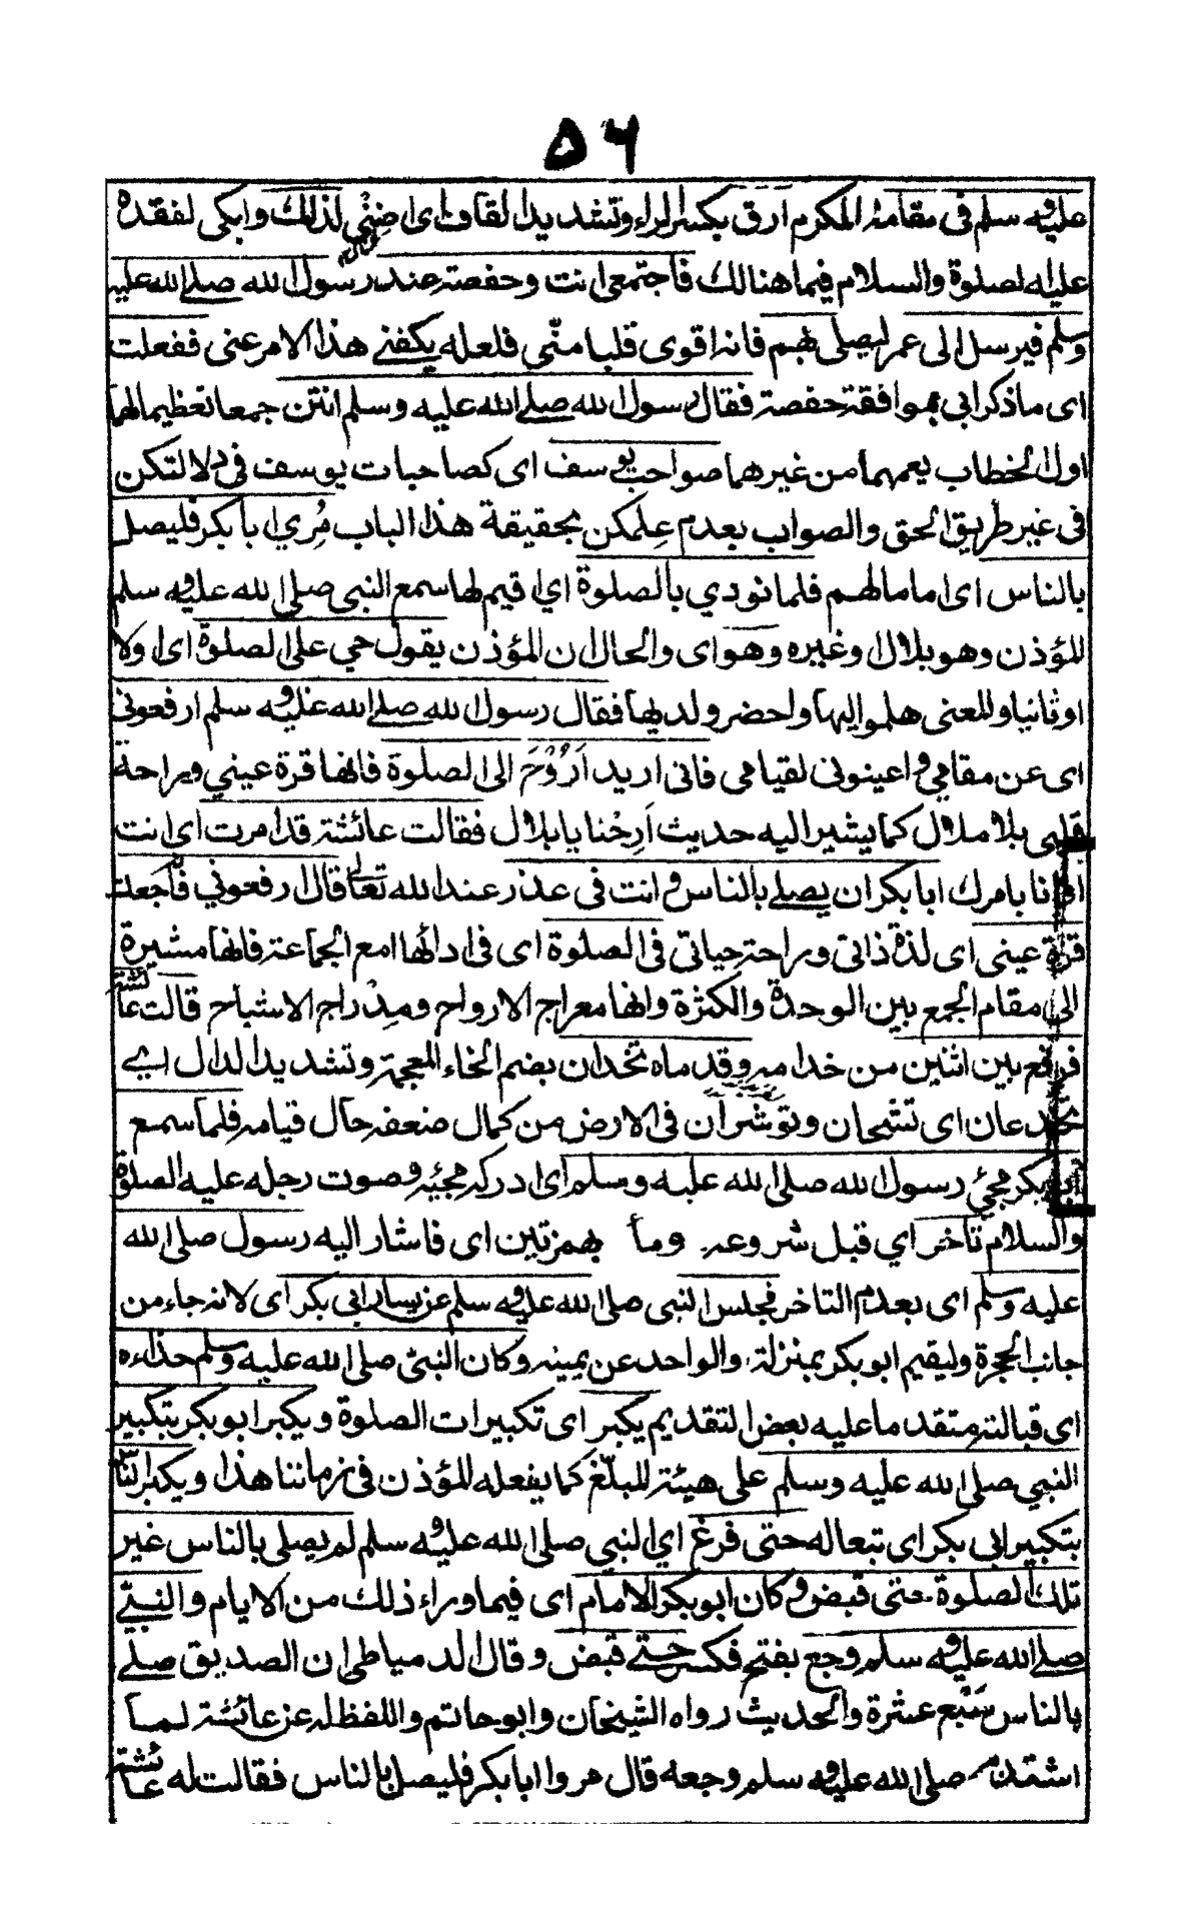 ٥٦
عليه وسلم فى مقامه المكرم أرق بكسر الراء وتشديد القاف اى اضنى لذلك وابكى لفقده
عليه الصلوة والسلام فيما هنالك فاجتمعى انت وحفصة عند رسول الله صلى الله عليه
وسلم فيرسل الى عمر ليصلى بهم فانه اقوى قلبا منّي فلعله يكفنے هذا الامر عنى ففعلت
اى ما ذكر ابى بموافقة حفصة فقال رسول الله صلى الله عليه وسلم انتن جمعا تعظيما لهما
اول الخطاب يعمهما من غيرهما صواحب يوسف اى كصاحبات يوسف فى دلالتكن
فى غير طريق الحق والصواب بعدم علمكن بحقيقة هذا الباب مُري ابا بكر فليصل
بالناس اى اماما لهم فلما نودي بالصلوة اي اقيم لها سمع النبى صلى الله عليه وسلم
المؤذن وهو بلال وغيره وهو اى والحال ان المؤذن يقول حي على الصلوة اى اولا
او ثانيا والمعنى هلموا اليها واحضروا لديها فقال رسول الله صلى الله عليه وسلم ارفعونى
اى عن مقامي واعينونى لقيامى فانى اريد أَرُوْحَ الى الصلوة فانها قرة عيني وراحة
قلبى بلا ملال كما يشير اليه حديث اَرِحْنا يا بلال فقالت عائشة قد امرت اى انت
او انا بامرك ابا بكر ان يصلے بالناس وانت فى عذر عند الله تعالى قال ارفعوني فانه جعلت
قرة عينى اى لذة ذاتى وراحة حياتى فى الصلوة اى فى ادائها مع الجماعة فانها مشيرة
الى مقام الجمع بين الوحدة والكثرة وانها معراج الارواح ومدراج الاشباح قالت عائشة
فرفع بين اثنين من خدامه وقدماه تخدان بضم الخاء المعجمة وتشديد الدال اے
تخددعان اى تشحان وتوشران فى الارض من كمال ضعفه حال قيامه فلما سمع
ابو بكر مجئ رسول الله صلى الله عليه وسلم اى ادركه مجيئه وصوت رجله عليه الصلوة
والسلام تاخر اي قبل شروعه وما بهمزتين اى فاشار اليه رسول صلى الله
عليه وسلم اى بعدم التاخر فجلس النبى صلى الله عليه وسلم عن يسار ابى بكر اى لانه جاء من
جانب الحجرة وليقيم ابو بكر بمنزلة الواحد عن يمينه وكان النبى صلى الله عليه وسلم حذاءه
اى قبالته متقدما عليه بعض التقديم يكبر اى تكبيرات الصلوة ويكبر ابو بكر بتكبير
النبي صلى الله عليه وسلم على هيئة المبلغ كما يفعله المؤذن فى زماننا هذا ويكبر الناس
بتكبير ابى بكر اى تبعا له حتى فرغ اي النبي صلى الله عليه وسلم لم يصلى بالناس غير
تلك الصلوة حتى قبض وكان ابو بكر الامام اى فيما وراء ذلك من الايام والنبے
صلى الله عليه وسلم وجع بفتح فكسر حتے قبض وقال الدمياطى ان الصديق صلے
بالناس سَبْع عشرة والحديث رواه الشيخان وابو حاتم واللفظ له عن عائشة لما
اشتد به صلى الله عليه وسلم وجعه قال مروا ابا بكر فليصل بالناس فقالت له عائشة